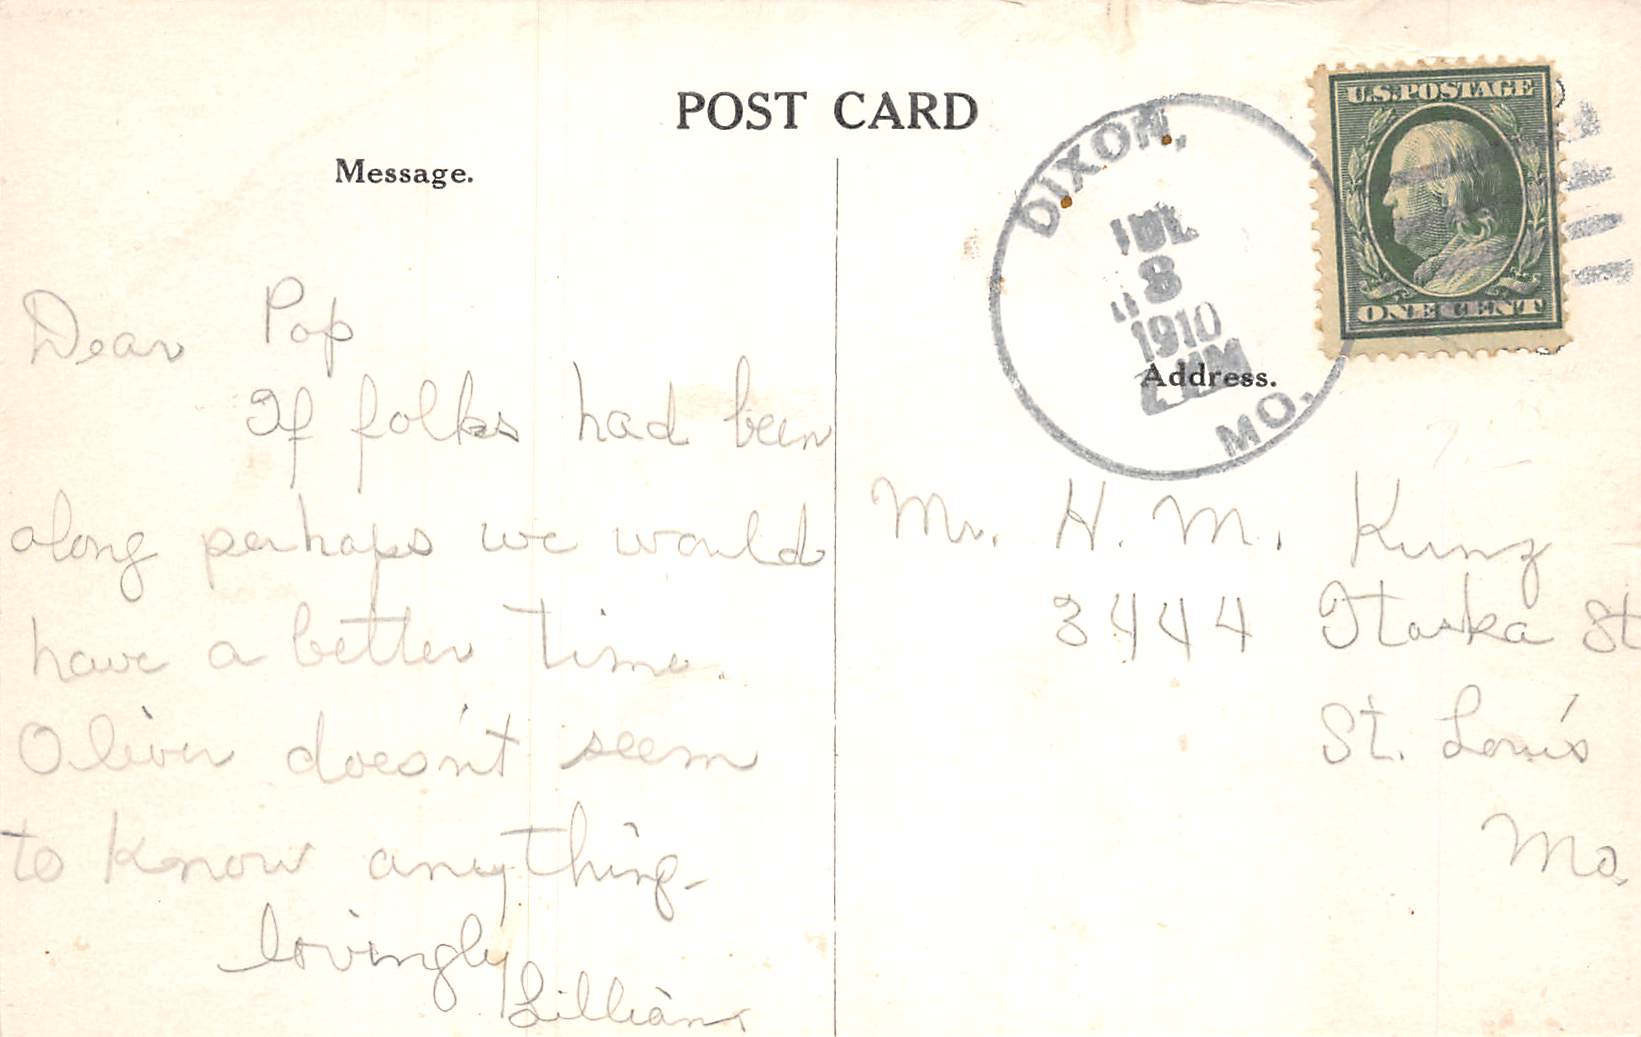 POST CARD
Message.
Dear Pop
If folks had been
along perhaps we would
have a better time.
Oliver doesn't seem
to know anything-
lovingly
Lillian
U.S. POSTAGE
ONE CENT
DIXON,
JUL
8
1910
MO.
Address.
Mr. H. M. Kunz
3444 Itaska St
St. Louis
Mo.